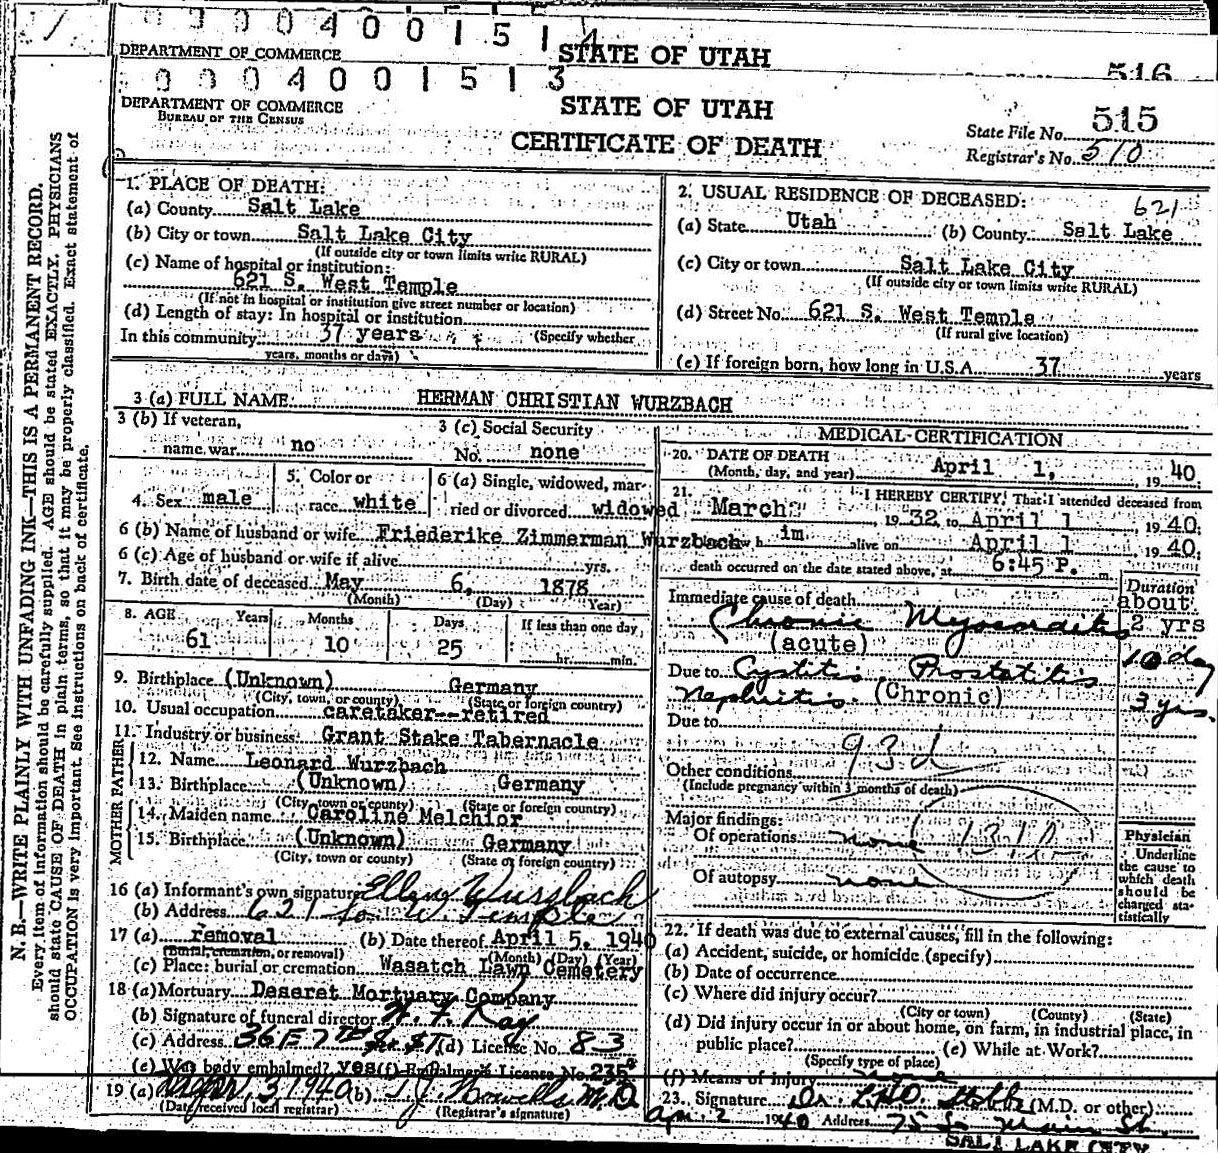 0 0 0 4 0 0 1 5 1 4
DEPARTMENT OF COMMERCE
STATE OF UTAH
516
0 0 0 4 0 0 1 5 1 3
DEPARTMENT OF COMMERCE
BUREAU OF THE CENSUS
STATE OF UTAH
CERTIFICATE OF DEATH
State File No. 515
Registrar's No. 510
N. B.—WRITE PLAINLY WITH UNFADING INK—THIS IS A PERMANENT RECORD.
Every item of information should be carefully supplied. AGE should be stated EXACTLY. PHYSICIANS
should state CAUSE OF DEATH in plain terms, so that it may be properly classified. Exact statement of
OCCUPATION is very important. See instructions on back of certificate.
1. PLACE OF DEATH:
(a) County Salt Lake
(b) City or town Salt Lake City
(If outside city or town limits write RURAL)
(c) Name of hospital or institution:
621 S. West Temple
(If not in hospital or institution give street number or location)
(d) Length of stay: In hospital or institution
In this community 37 years (Specify whether
years, months or days)
2. USUAL RESIDENCE OF DECEASED: 621
(a) State Utah (b) County Salt Lake
(c) City or town Salt Lake City
(If outside city or town limits write RURAL)
(d) Street No. 621 S. West Temple
(If rural give location)
(e) If foreign born, how long in U.S.A. 37 years
3 (a) FULL NAME HERMAN CHRISTIAN WURZBACH
3 (b) If veteran,
name war no
3 (c) Social Security
No. none
4. Sex male
5. Color or
race white
6 (a) Single, widowed, mar-
ried or divorced widowed
6 (b) Name of husband or wife Friederike Zimmerman Wurzbach
6 (c) Age of husband or wife if alive yrs.
7. Birth date of deceased May 6, 1878
(Month) (Day) (Year)
8. AGE Years Months Days If less than one day
61 10 25 hr. min.
9. Birthplace (Unknown) Germany
(City, town, or county) (State or foreign country)
10. Usual occupation caretaker--retired
11. Industry or business Grant Stake Tabernacle
FATHER
12. Name Leonard Wurzbach
13. Birthplace (Unknown) Germany
(City, town or county) (State or foreign country)
MOTHER
14. Maiden name Caroline Melchior
15. Birthplace (Unknown) Germany
(City, town or county) (State or foreign country)
16 (a) Informant's own signature Ellen Wurzbach
(b) Address 621 So. W. Temple
17 (a) removal (b) Date thereof April 5, 1940
(Burial, cremation, or removal) (Month) (Day) (Year)
(c) Place: burial or cremation Wasatch Lawn Cemetery
18 (a) Mortuary Deseret Mortuary Company
(b) Signature of funeral director
(c) Address 36 E 7th (d) License No. 83
(e) Was body embalmed? yes (f) Embalmer's License No. 235
19 (a) Apr. 3, 1940 (b) M.D.
(Date received local registrar) (Registrar's signature)
MEDICAL CERTIFICATION
20. DATE OF DEATH
(Month, day, and year) April 1, 1940.
21. I HEREBY CERTIFY, That I attended deceased from
March 1932 to April 1 1940;
im alive on April 1 1940;
death occurred on the date stated above, at 6:45 P. m
Duration
Immediate cause of death about
Chronic Myocarditis 2 yrs
(acute)
Due to Cystitis, Prostatitis 10 day
Nephritis (Chronic) 3 yrs.
Due to
93d
Other conditions
(Include pregnancy within 3 months of death)
Major findings:
Of operations none
Of autopsy none
Physician
Underline
the cause to
which death
should be
charged sta-
tistically
22. If death was due to external causes, fill in the following:
(a) Accident, suicide, or homicide (specify)
(b) Date of occurrence
(c) Where did injury occur?
(City or town) (County) (State)
(d) Did injury occur in or about home, on farm, in industrial place, in
public place? (e) While at Work?
(Specify type of place)
(f) Means of injury
23. Signature Dr. (M.D. or other)
Apr. 2 1940 Address 75 So Main St.
SALT LAKE CITY